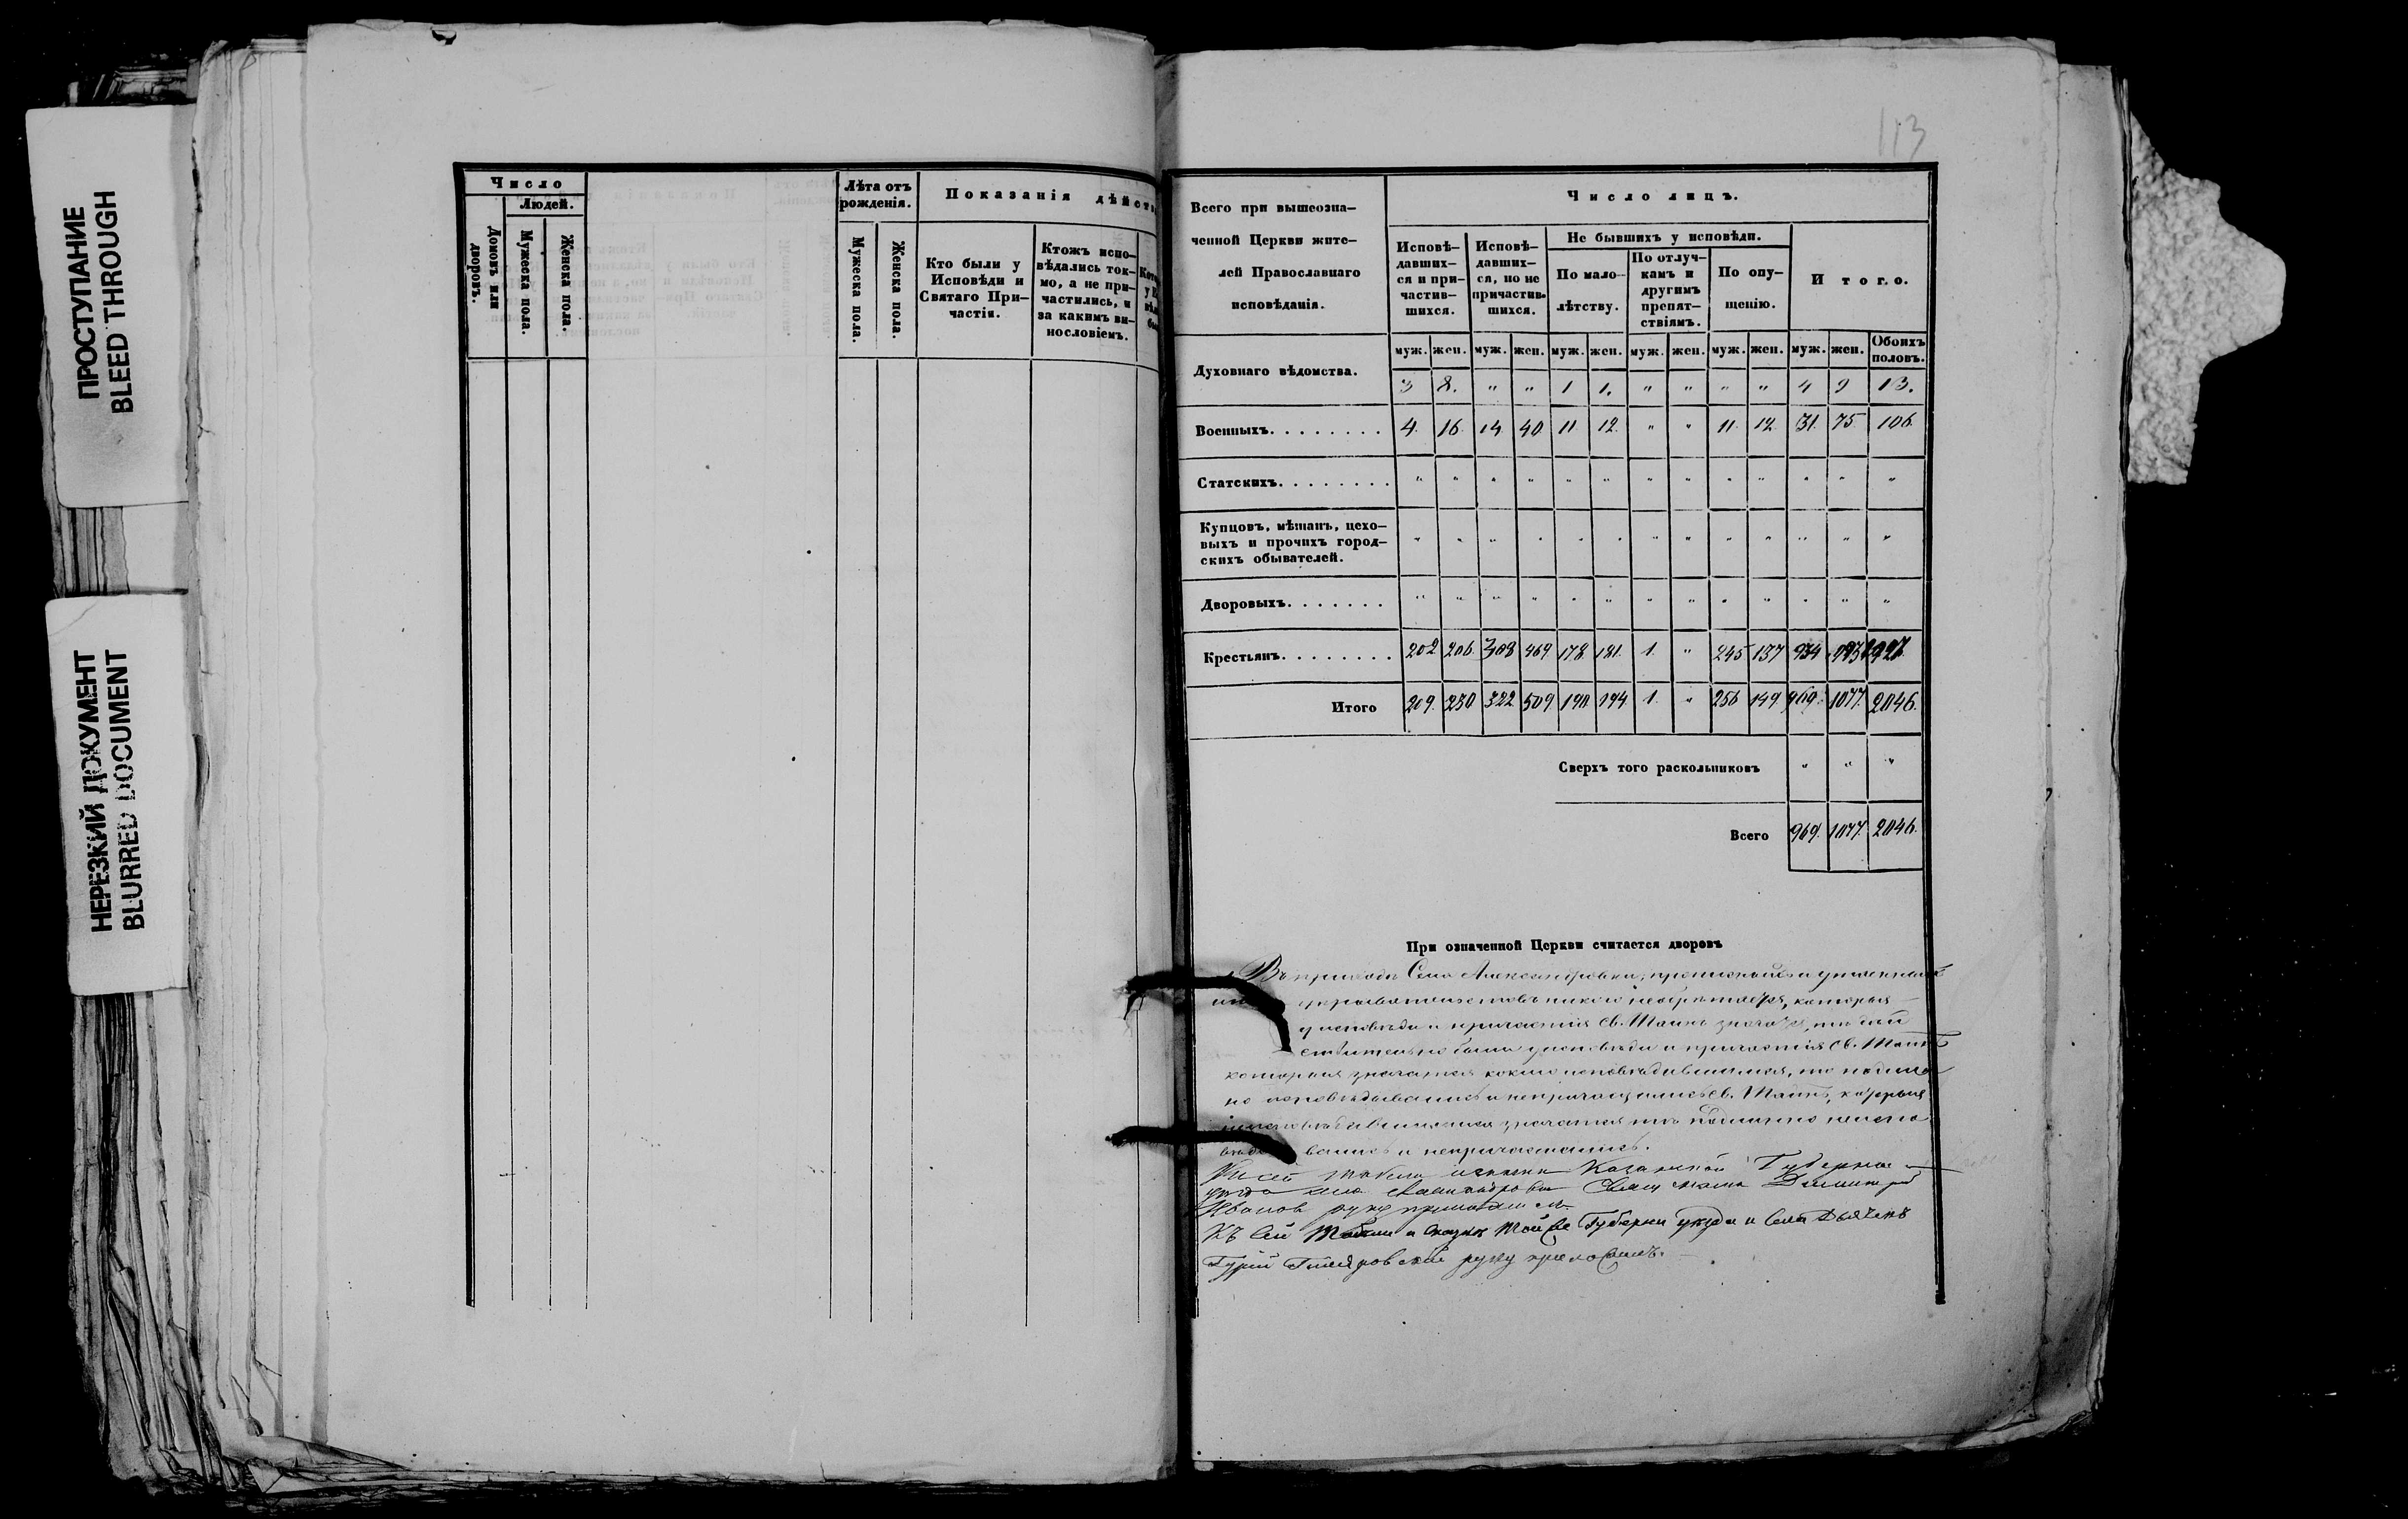 ПРОСТУПАНИЕ
BLEED THROUGH
НЕРЕЗКИЙ ДОКУМЕНТ
BLURRED DOCUMENT
Число
Людей.
Домовъ или дворовъ.
Мужеска пола.
Женска пола.
Лѣта отъ рожденія.
Мужеска пола.
Женска пола.
Показанія дѣйст
Кто были у
Исповѣди и
Святаго При-
частія.
Ктожъ испо-
вѣдались ток-
мо, а не при-
частились, и
за какимъ ви-
нословіемъ.
113
Всего при вышеозна-
ченной Церкви жите-
лей Православнаго
исповѣданія.
Число лицъ.
Исповѣ-
давших-
ся и при-
частив-
шихся.
Исповѣ-
давших-
ся, но не
причастив-
шихся.
Не бывшихъ у исповѣди.
По мало-
лѣтству.
По отлуч-
камъ и
другимъ
препят-
ствіямъ.
По опу-
щенію.
Итого.
муж. жен. муж. жен. муж. жен. муж. жен. муж. жен. муж. жен. Обоихъ половъ.
Духовнаго вѣдомства. 3 8. " " 1 1. " " " " 4 9 13.
Военныхъ. . . . . . . . 4. 16. 14 40 11. 12. " " 11. 12. 31. 75 106.
Статскихъ. . . . . . . . " " " " " " " " " " " " "
Купцовъ, мѣщанъ, цехо-
выхъ и прочихъ город-
скихъ обывателей. " " " " " " " " " " " " "
Дворовыхъ. . . . . . . " " " " " " " " " " " " "
Крестьянъ. . . . . . . . 202 206. 308 469 178. 181. 1. " 245 137 934 993 1927.
Итого 209. 230 322 509 190 194. 1. " 256 149 969. 1077. 2046.
Сверхъ того раскольниковъ " " "
Всего 969. 1077. 2046.
При означенной Церкви считается дворовъ
Въ приходѣ Села Александровки, и
никого которыя
у исповѣди и причастія Св. Таинъ
были у исповѣди и причастія Св. Таинъ
которыя значатся
не исповѣдывались и непричащались Св. Таинъ,
значатся
вались и непричащались.
Казанской Губерніи
села Александровки Димитрій
Ивановъ руку приложилъ
Къ сей и той же Губерніи уѣзда и Села Дьячекъ
Гурій руку приложилъ.